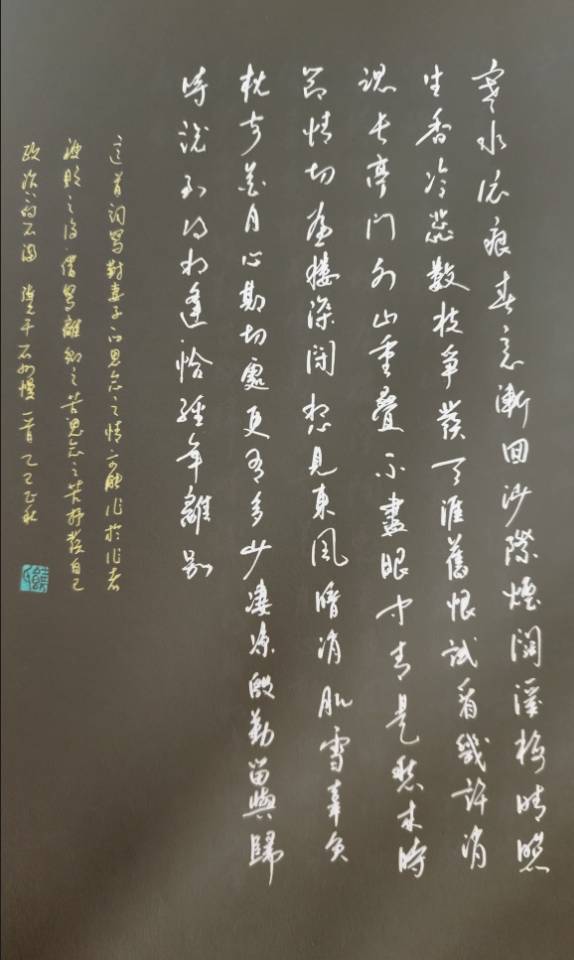 寒水依痕春意漸回沙際煙闊溪梅晴照
生香冷蕊數枝爭發天涯舊恨試看幾許消
魂長亭門外山重疊不盡眼中青是愁來時
節情切畫樓深閉想見東風暗消肌雪辜負
枕花月心期切處更有多少淒涼殷勤留與歸
時說到得相逢恰經年離別
這首詞寫對妻子的思念之情可能作於作者
被貶之後借寫離鄉之苦思念之苦抒發自己
政治的不滿 張元干石州慢一首 乙巳